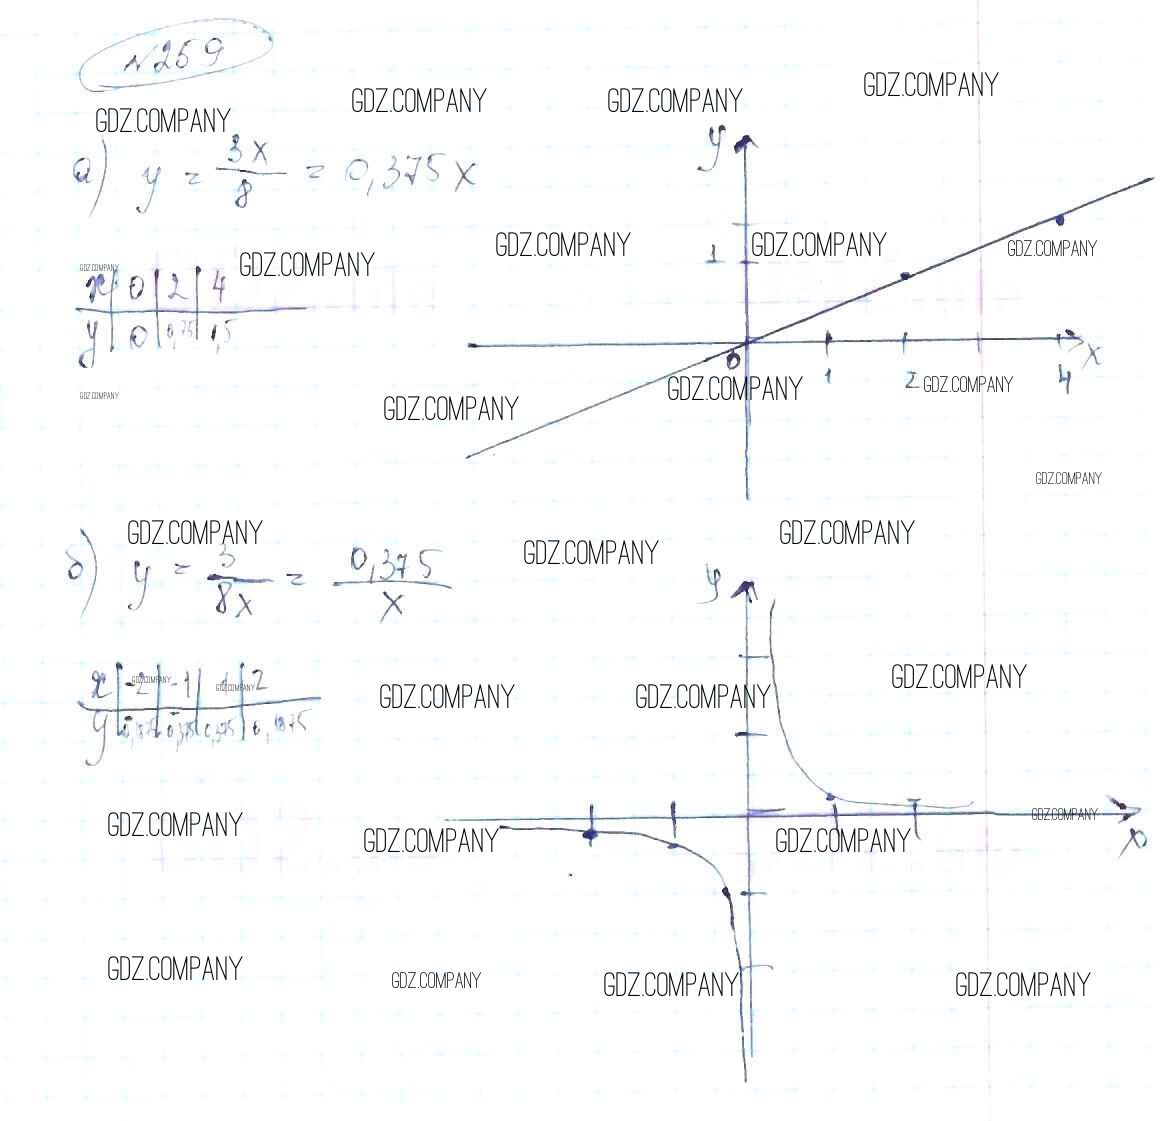 №259
GDZ.COMPANY GDZ.COMPANY GDZ.COMPANY GDZ.COMPANY
а) y = 3x/8 = 0,375x
y
GDZ.COMPANY GDZ.COMPANY GDZ.COMPANY GDZ.COMPANY GDZ.COMPANY
1
x 0 2 4
y 0 0,75 1,5
0 1 2 4 x
GDZ.COMPANY GDZ.COMPANY GDZ.COMPANY GDZ.COMPANY
GDZ.COMPANY
GDZ.COMPANY GDZ.COMPANY GDZ.COMPANY
б) y = 3/8x = 0,375/x
y
GDZ.COMPANY GDZ.COMPANY GDZ.COMPANY GDZ.COMPANY GDZ.COMPANY
x -2 -1 1 2
y 0,1875
GDZ.COMPANY GDZ.COMPANY GDZ.COMPANY GDZ.COMPANY
x
GDZ.COMPANY GDZ.COMPANY GDZ.COMPANY GDZ.COMPANY